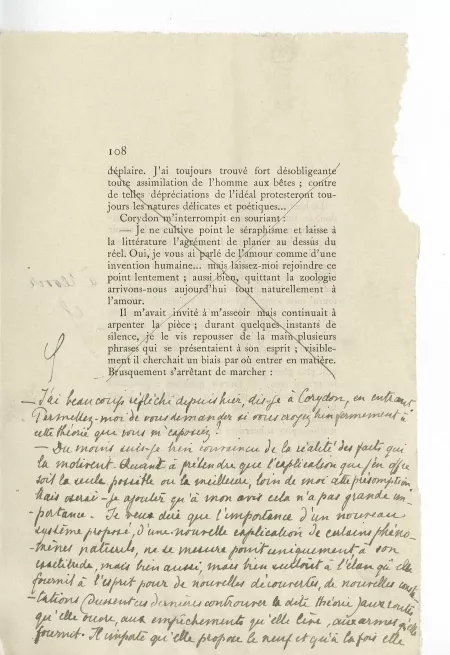 108
déplaire. J'ai toujours trouvé fort désobligeante
toute assimilation de l'homme aux bêtes ; contre
de telles dépréciations de l'idéal protesteront tou-
jours les natures délicates et poétiques...
Corydon m'interrompit en souriant :
— Je ne cultive point le séraphisme et laisse à
la littérature l'agrément de planer au dessus du
réel. Oui, je vous ai parlé de l'amour comme d'une
invention humaine... mais laissez-moi rejoindre ce
point lentement ; aussi bien, quittant la zoologie
arrivons-nous aujourd'hui tout naturellement à
l'amour.
Il m'avait invité à m'asseoir mais continuait à
arpenter la pièce ; durant quelques instants de
silence, je le vis repousser de la main plusieurs
phrases qui se présentaient à son esprit ; visible-
ment il cherchait un biais par où entrer en matière.
Brusquement s'arrêtant de marcher :
— J'ai beaucoup réfléchi depuis hier, dis-je à Corydon, en entrant
Permettez-moi de vous demander si vous croyez bien fermement à
cette théorie que vous m'exposiez ?
— Du moins suis-je bien convaincu de la réalité des faits qui
la motivent. Quant à prétendre que l'explication que j'en offre
soit la seule possible ou la meilleure, loin de moi cette présomption
Mais oserai-je ajouter qu'à mon avis cela n'a pas grande im-
portance. Je veux dire que l'importance d'un nouveau
système proposé, d'une nouvelle explication de certains phéno-
mènes naturels, ne se mesure point uniquement à son
exactitude, mais bien aussi, mais bien surtout à l'élan qu'elle
fournit à l'esprit pour de nouvelles découvertes, de nouvelles const
tations (dussent ces dernières controuver la dite théorie) aux routes
qu'elle ouvre, aux empêchements qu'elle lève, aux armes qu'elle
fournit. Il importe qu'elle propose le neuf et qu'à la fois elle